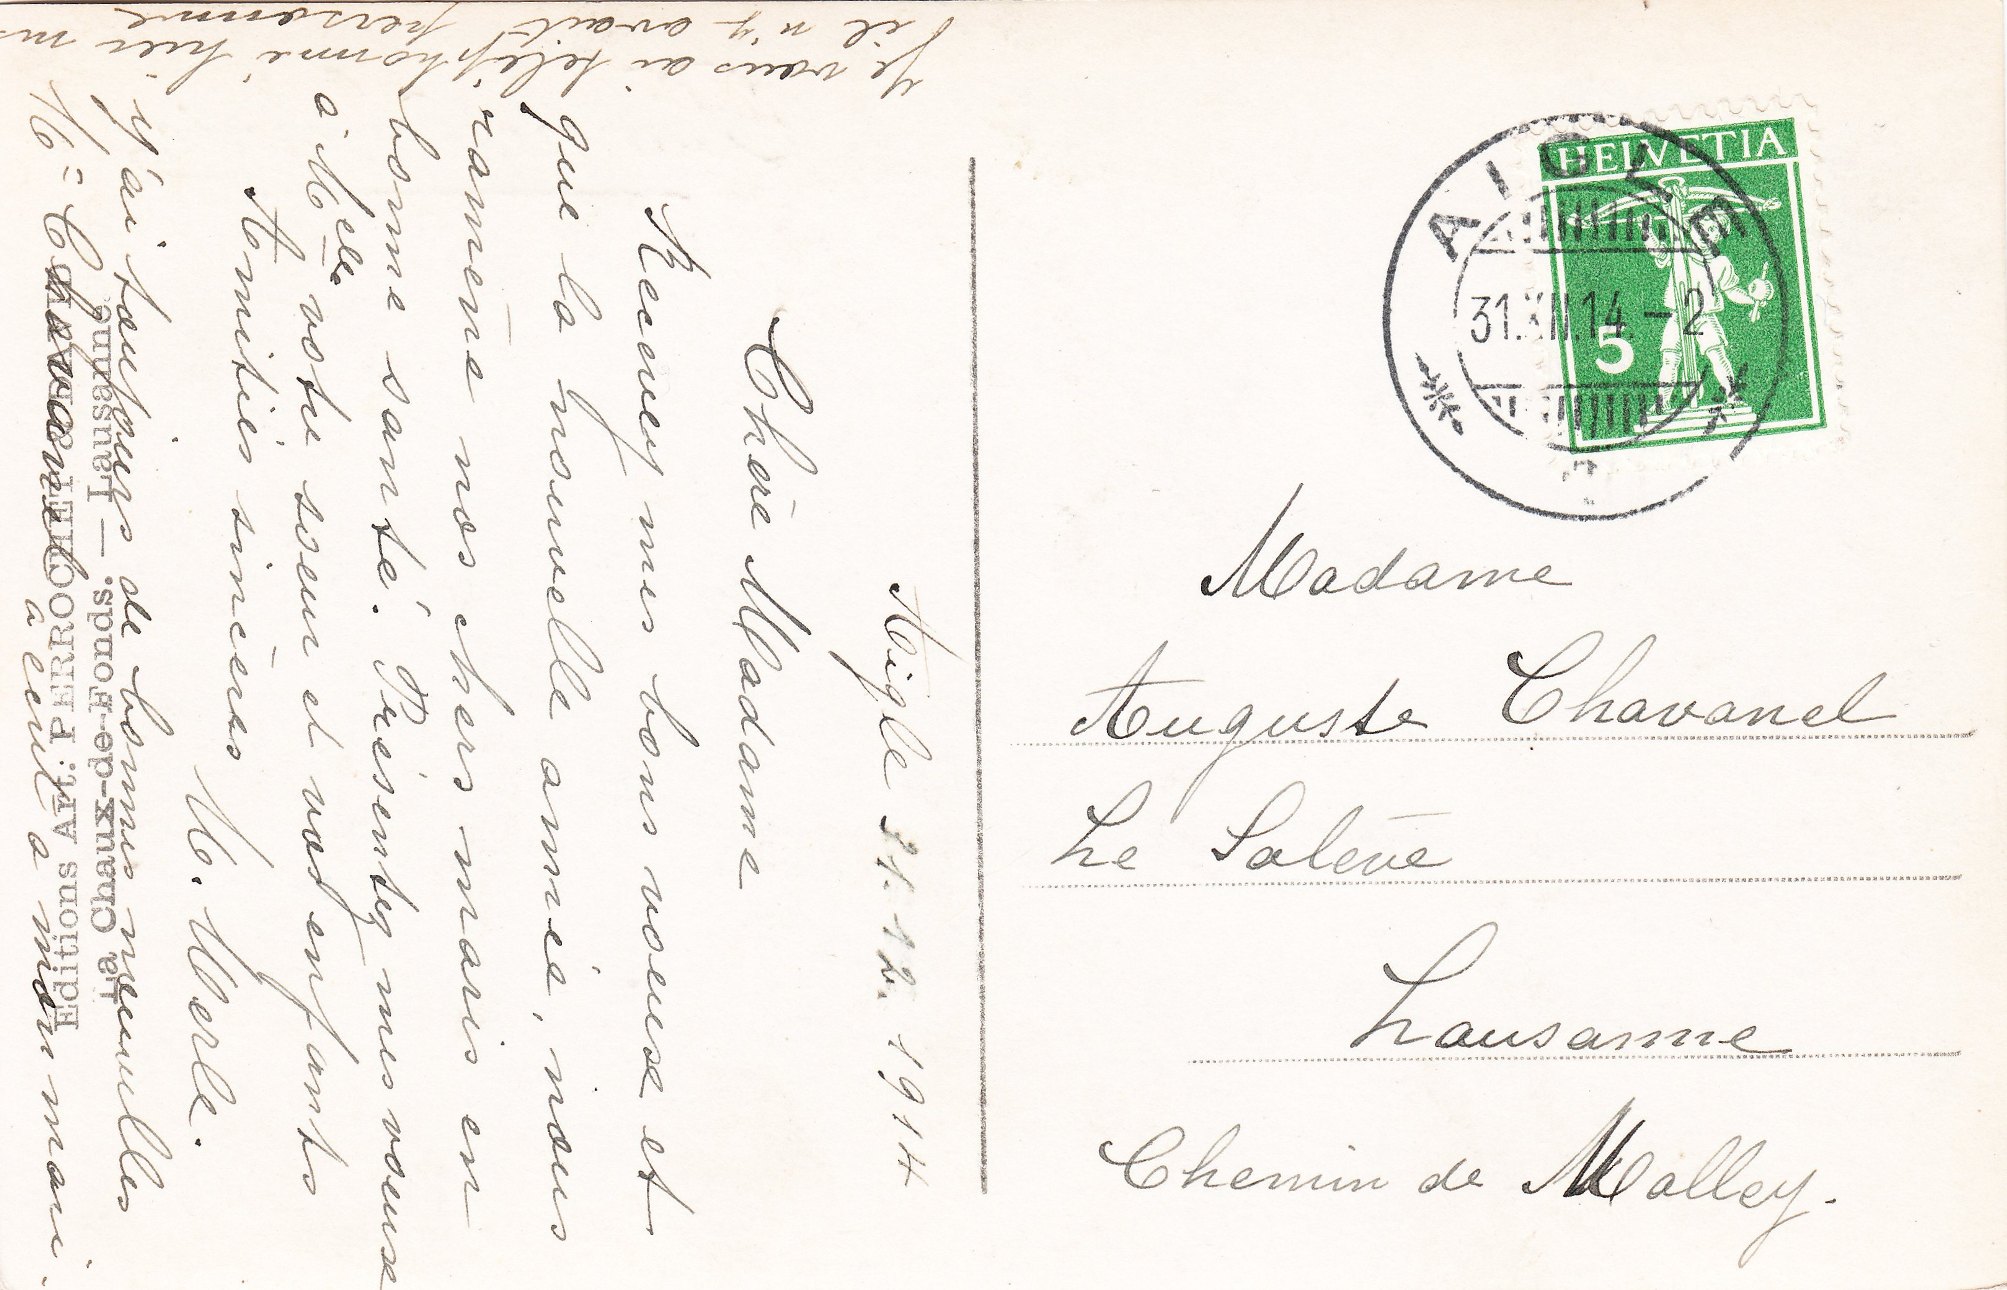 Aigle 31.12.1914
Chère Madame
Recevez mes bons voeux et
que la nouvelle année, nous
ramène nos chers maris en
bonne santé. Présentez mes voeux
à Melle votre soeur et vos enfants
Amitiés sincères
M. Merle.
J'ai toujours de bonnes nouvelles
M: Chavanel a écrit à mon mari.
Je vous ai téléphoné hier mais
il n'y avait personne
Editions Art. PERROCHET
La Chaux-de-Fonds. — Lausanne
HELVETIA
5
AIGLE
31.XII.14.-2
Madame
Auguste Chavanel
Le Salève
Lausanne
Chemin de Malley.